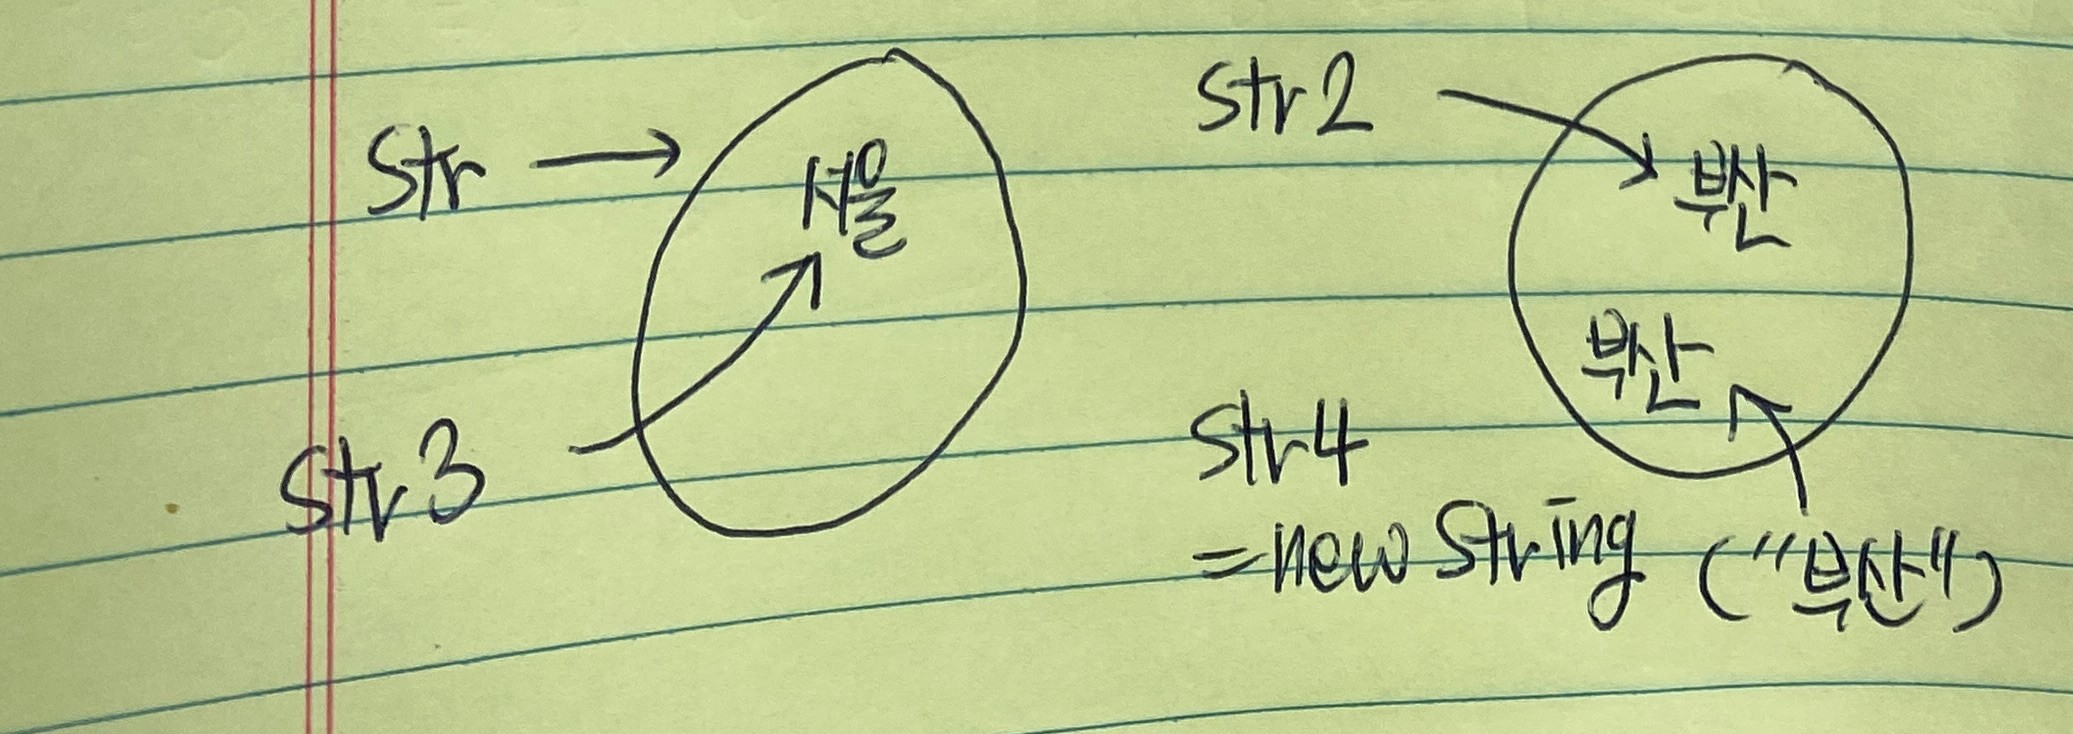 Str → 서울
Str3
Str2 부산
부산
Str4
=new String ("부산")